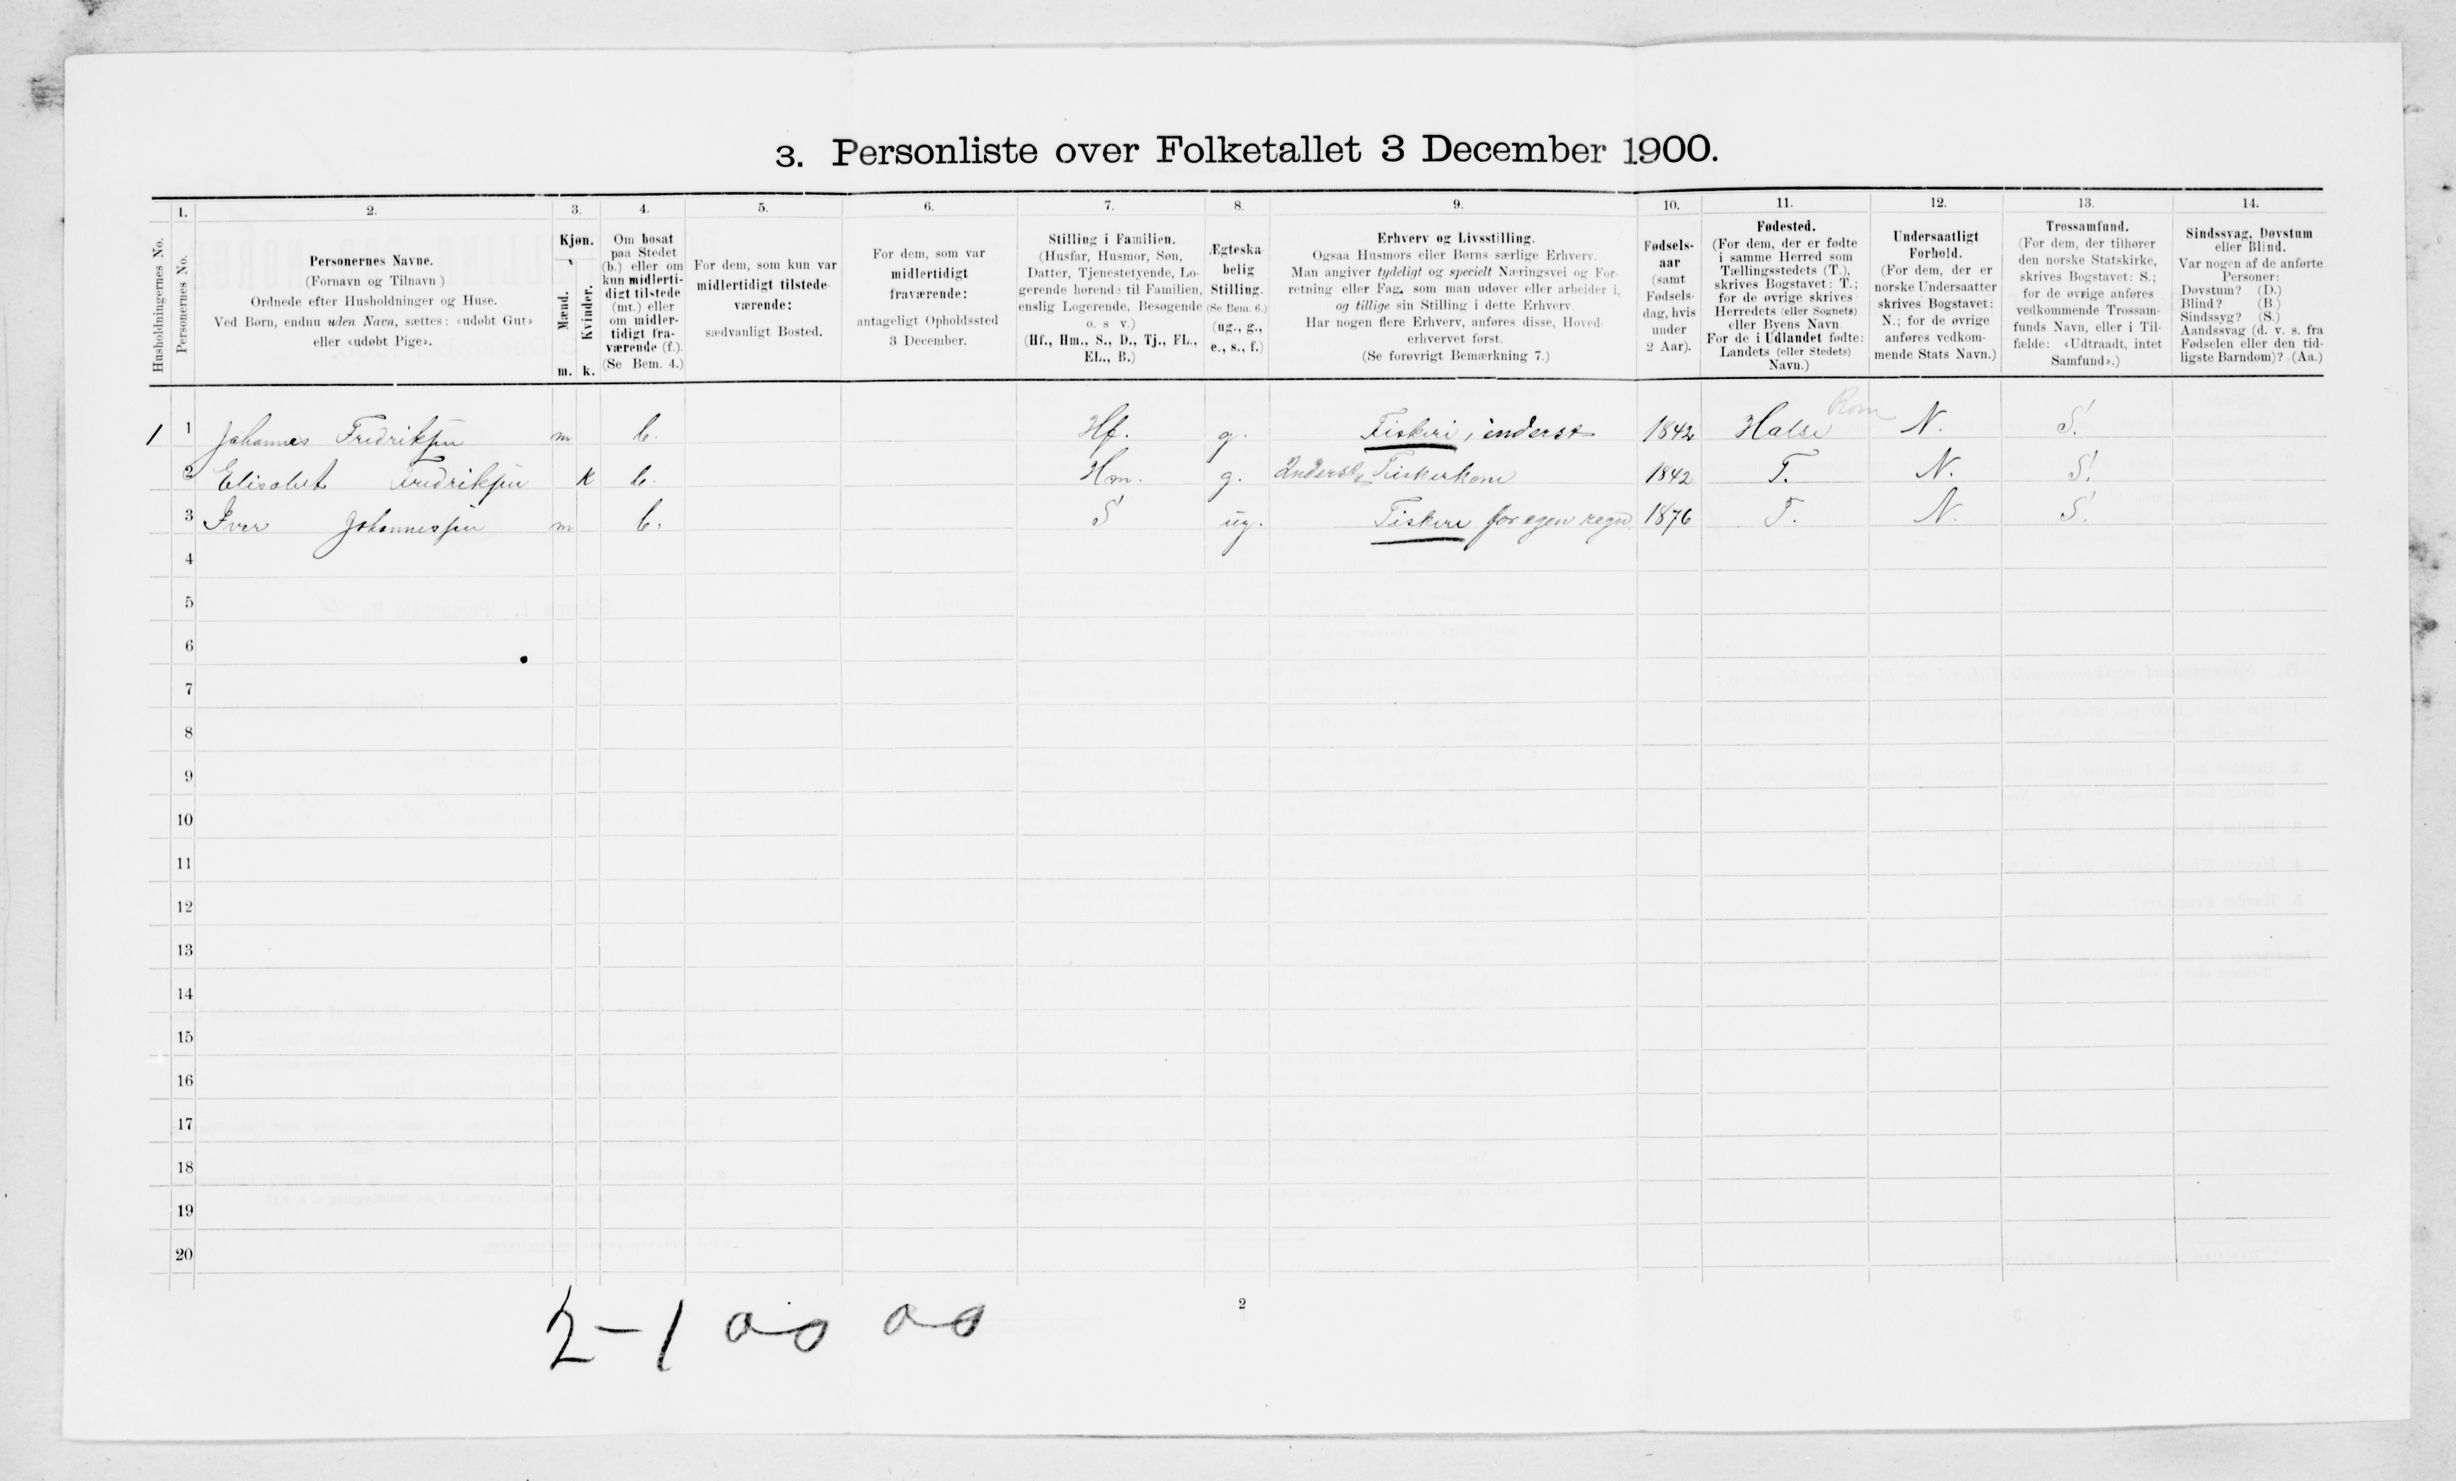 3. Personliste over Folketallet 3 December 1900.
Husholdningernes No.
1.
Personernes No.
2.
Personernes Navne.
(Fornavn og Tilnavn)
Ordnede efter Husholdninger og Huse.
Ved Børn, endnu uden Navn, sættes: «udøbt Gut»
eller «udøbt Pige».
3.
Kjøn.
Mænd.
Kvinder.
m. k.
4.
Om bosat
paa Stedet
(b.) eller om
kun midlerti-
digt tilstede
(mt.) eller
om midler-
tidigt fra-
værende (f.).
(Se Bem. 4.)
5.
For dem, som kun var
midlertidigt tilstede-
værende:
sædvanligt Bosted.
6.
For dem, som var
midlertidigt
fraværende:
antageligt Opholdssted
3 December.
7.
Stilling i Familien.
(Husfar, Husmor, Søn,
Datter, Tjenestetyende, Lo-
gerende hørende til Familien,
enslig Logerende, Besøgende
o. s v.)
(Hf., Hm., S., D., Tj., FL.,
EL., B.)
8.
Ægteska-
belig
Stilling.
(Se Bem. 6.)
(ug., g.,
e., s., f.)
9.
Erhverv og Livsstilling.
Ogsaa Husmors eller Børns særlige Erhverv.
Man angiver tydeligt og specielt Næringsvei og For-
retning eller Fag, som man udøver eller arbeider i,
og tillige sin Stilling i dette Erhverv.
Har nogen flere Erhverv, anføres disse, Hoved-
erhvervet først.
(Se forøvrigt Bemærkning 7.)
10.
Fødsels-
aar
(samt
Fødsels-
dag, hvis
under
2 Aar).
11.
Fødested.
(For dem, der er fødte
i samme Herred som
Tællingsstedets (T.),
skrives Bogstavet: T.;
for de øvrige skrives
Herredets (eller Sognets)
eller Byens Navn.
For de i Udlandet fødte:
Landets (eller Stedets)
Navn.)
12.
Undersaatligt
Forhold.
(For dem, der er
norske Undersaatter
skrives Bogstavet:
N.; for de øvrige
anføres vedkom-
mende Stats Navn.)
13.
Trossamfund.
(For dem, der tilhører
den norske Statskirke,
skrives Bogstavet: S.;
for de øvrige anføres
vedkommende Trossam-
funds Navn, eller i Til-
fælde: «Udtraadt, intet
Samfund».)
14.
Sindssvag, Døvstum
eller Blind.
Var nogen af de anførte
Personer:
Døvstum? (D.)
Blind? (B.)
Sindssyg? (S.)
Aandssvag (d. v. s. fra
Fødselen eller den tid-
ligste Barndom)? (Aa.)
1 1 Johannes Fredriksen m b. Hf. g. Fiskeri, inderst 1842 Halse Rom N. S.
2 Elisabet Fredriksen k b. Hm. g. Inderst, Fiskerkone 1842 T. N. S.
3 Iver Johannessen m b. S ug. Fiskeri for egen regn 1876 T. N. S.
4
5
6
7
8
9
10
11
12
13
14
15
16
17
18
19
20
2
2-1